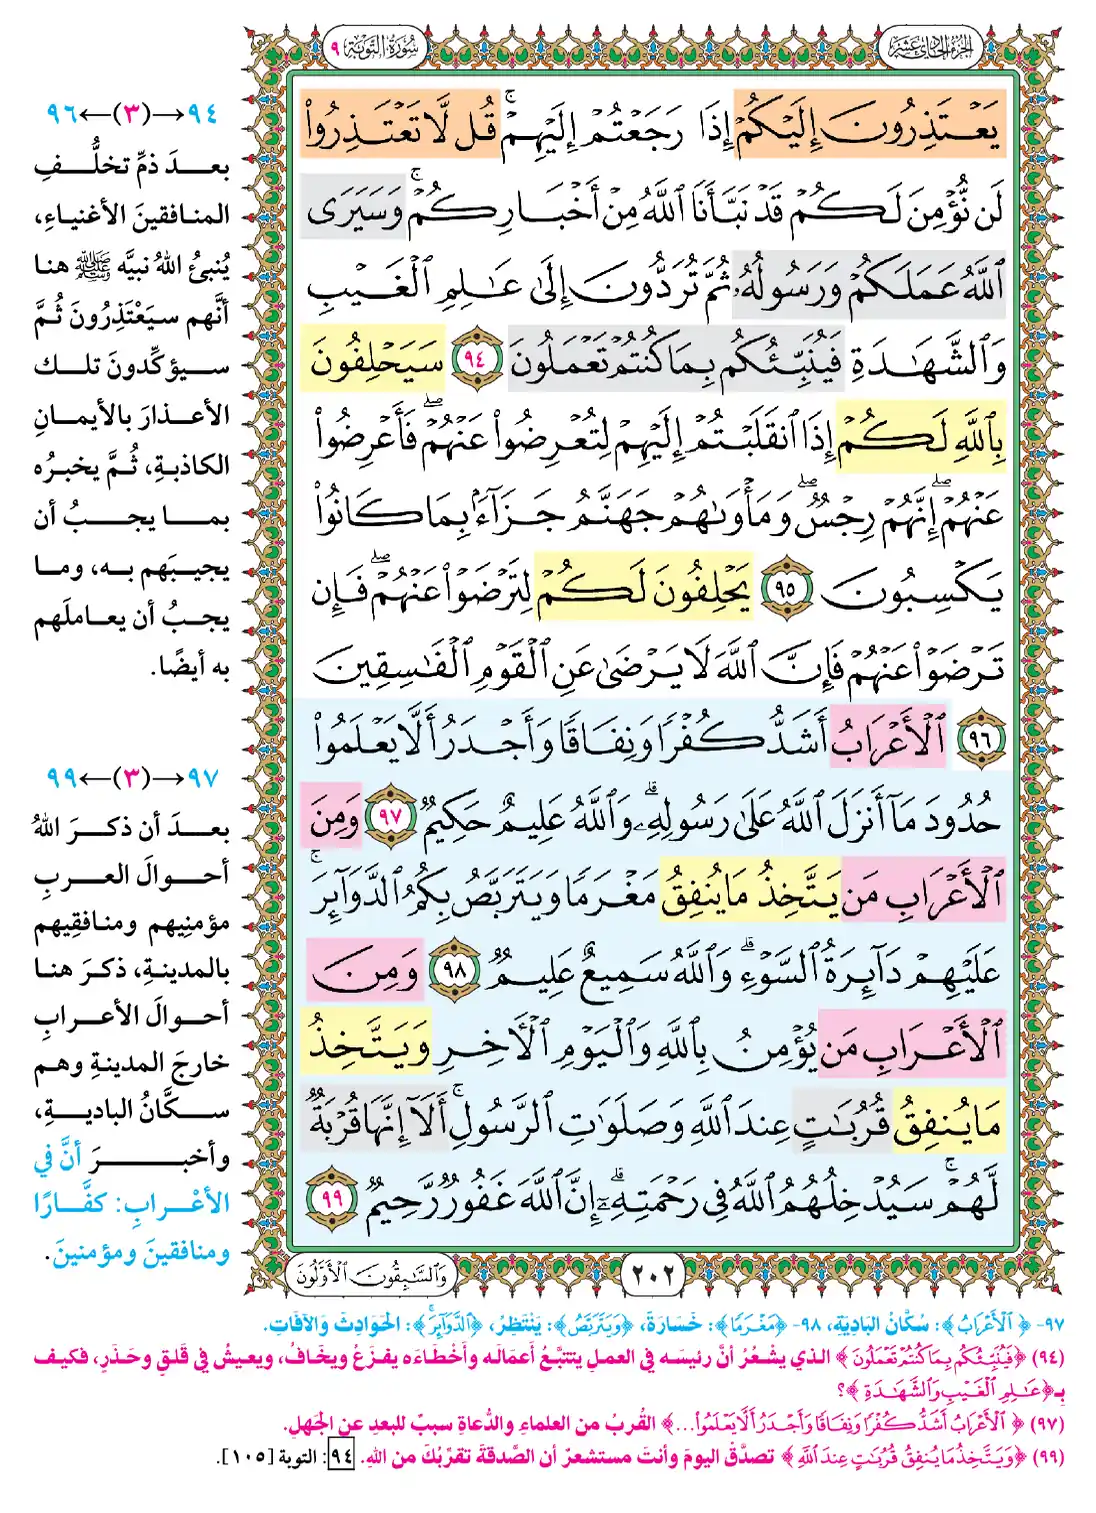 الجزء الحادي عشر
سورة التوبة ٩
يَعْتَذِرُونَ إِلَيْكُمْ إِذَا رَجَعْتُمْ إِلَيْهِمْ ۚ قُل لَّا تَعْتَذِرُوا۟
لَن نُّؤْمِنَ لَكُمْ قَدْ نَبَّأَنَا ٱللَّهُ مِنْ أَخْبَارِكُمْ ۚ وَسَيَرَى
ٱللَّهُ عَمَلَكُمْ وَرَسُولُهُۥ ثُمَّ تُرَدُّونَ إِلَىٰ عَٰلِمِ ٱلْغَيْبِ
وَٱلشَّهَٰدَةِ فَيُنَبِّئُكُم بِمَا كُنتُمْ تَعْمَلُونَ ٩٤ سَيَحْلِفُونَ
بِٱللَّهِ لَكُمْ إِذَا ٱنقَلَبْتُمْ إِلَيْهِمْ لِتُعْرِضُوا۟ عَنْهُمْ ۖ فَأَعْرِضُوا۟
عَنْهُمْ ۖ إِنَّهُمْ رِجْسٌ ۖ وَمَأْوَىٰهُمْ جَهَنَّمُ جَزَآءًۢ بِمَا كَانُوا۟
يَكْسِبُونَ ٩٥ يَحْلِفُونَ لَكُمْ لِتَرْضَوْا۟ عَنْهُمْ ۖ فَإِن
تَرْضَوْا۟ عَنْهُمْ فَإِنَّ ٱللَّهَ لَا يَرْضَىٰ عَنِ ٱلْقَوْمِ ٱلْفَٰسِقِينَ
٩٦ ٱلْأَعْرَابُ أَشَدُّ كُفْرًا وَنِفَاقًا وَأَجْدَرُ أَلَّا يَعْلَمُوا۟
حُدُودَ مَآ أَنزَلَ ٱللَّهُ عَلَىٰ رَسُولِهِۦ ۗ وَٱللَّهُ عَلِيمٌ حَكِيمٌ ٩٧ وَمِنَ
ٱلْأَعْرَابِ مَن يَتَّخِذُ مَا يُنفِقُ مَغْرَمًا وَيَتَرَبَّصُ بِكُمُ ٱلدَّوَآئِرَ ۚ
عَلَيْهِمْ دَآئِرَةُ ٱلسَّوْءِ ۗ وَٱللَّهُ سَمِيعٌ عَلِيمٌ ٩٨ وَمِنَ
ٱلْأَعْرَابِ مَن يُؤْمِنُ بِٱللَّهِ وَٱلْيَوْمِ ٱلْءَاخِرِ وَيَتَّخِذُ
مَا يُنفِقُ قُرُبَٰتٍ عِندَ ٱللَّهِ وَصَلَوَٰتِ ٱلرَّسُولِ ۚ أَلَآ إِنَّهَا قُرْبَةٌ
لَّهُمْ ۚ سَيُدْخِلُهُمُ ٱللَّهُ فِى رَحْمَتِهِۦٓ ۗ إِنَّ ٱللَّهَ غَفُورٌ رَّحِيمٌ ٩٩
٢٠٢
وَٱلسَّٰبِقُونَ ٱلْأَوَّلُونَ
٩٤→(٣)←٩٦
بعدَ ذمِّ تخلُّفِ
المنافقينَ الأغنياءِ،
يُنبئُ اللهُ نبيَّه ﷺ هنا
أنَّهم سيَعْتَذِرُونَ ثُمَّ
سيؤكِّدونَ تلك
الأعذارَ بالأيمانِ
الكاذبةِ، ثُمَّ يخبرُه
بما يجبُ أن
يجيبَهم به، وما
يجبُ أن يعاملَهم
به أيضًا.
٩٧→(٣)←٩٩
بعدَ أن ذكرَ اللهُ
أحوالَ العربِ
مؤمنِيهم ومنافقِيهم
بالمدينةِ، ذكرَ هنا
أحوالَ الأعرابِ
خارجَ المدينةِ وهم
سكَّانُ الباديةِ،
وأخبرَ أنَّ في
الأعْرابِ: كفَّارًا
ومنافقينَ ومؤمنينَ.
٩٧- ﴿ٱلْأَعْرَابُ﴾: سُكَّانُ البَادِيَةِ، ٩٨- ﴿مَغْرَمًا﴾: خَسَارَةً، ﴿وَيَتَرَبَّصُ﴾: يَنْتَظِرُ، ﴿ٱلدَّوَآئِرَ ۚ﴾: الحَوَادِثَ وَالآفَاتِ.
(٩٤) ﴿فَيُنَبِّئُكُم بِمَا كُنتُمْ تَعْمَلُونَ﴾ الذي يشْعُرُ أنَّ رئيسَه في العملِ يتتبَّعُ أعمَالَه وأخْطَاءَه يفزَعُ ويخَافُ، ويعيشُ في قلقٍ وحَذَرٍ، فكيف
بـ﴿عَٰلِمِ ٱلْغَيْبِ وَٱلشَّهَٰدَةِ﴾؟
(٩٧) ﴿ٱلْأَعْرَابُ أَشَدُّ كُفْرًا وَنِفَاقًا وَأَجْدَرُ أَلَّا يَعْلَمُوا۟...﴾ القُربُ من العلماءِ والدُّعاةِ سببٌ للبعدِ عن الجَهلِ.
(٩٩) ﴿وَيَتَّخِذُ مَا يُنفِقُ قُرُبَٰتٍ عِندَ ٱللَّهِ﴾ تصدَّقْ اليومَ وأنتَ مستشعرٌ أن الصَّدقةَ تقرّبُكَ من اللهِ. ٩٤: التوبة [١٠٥].